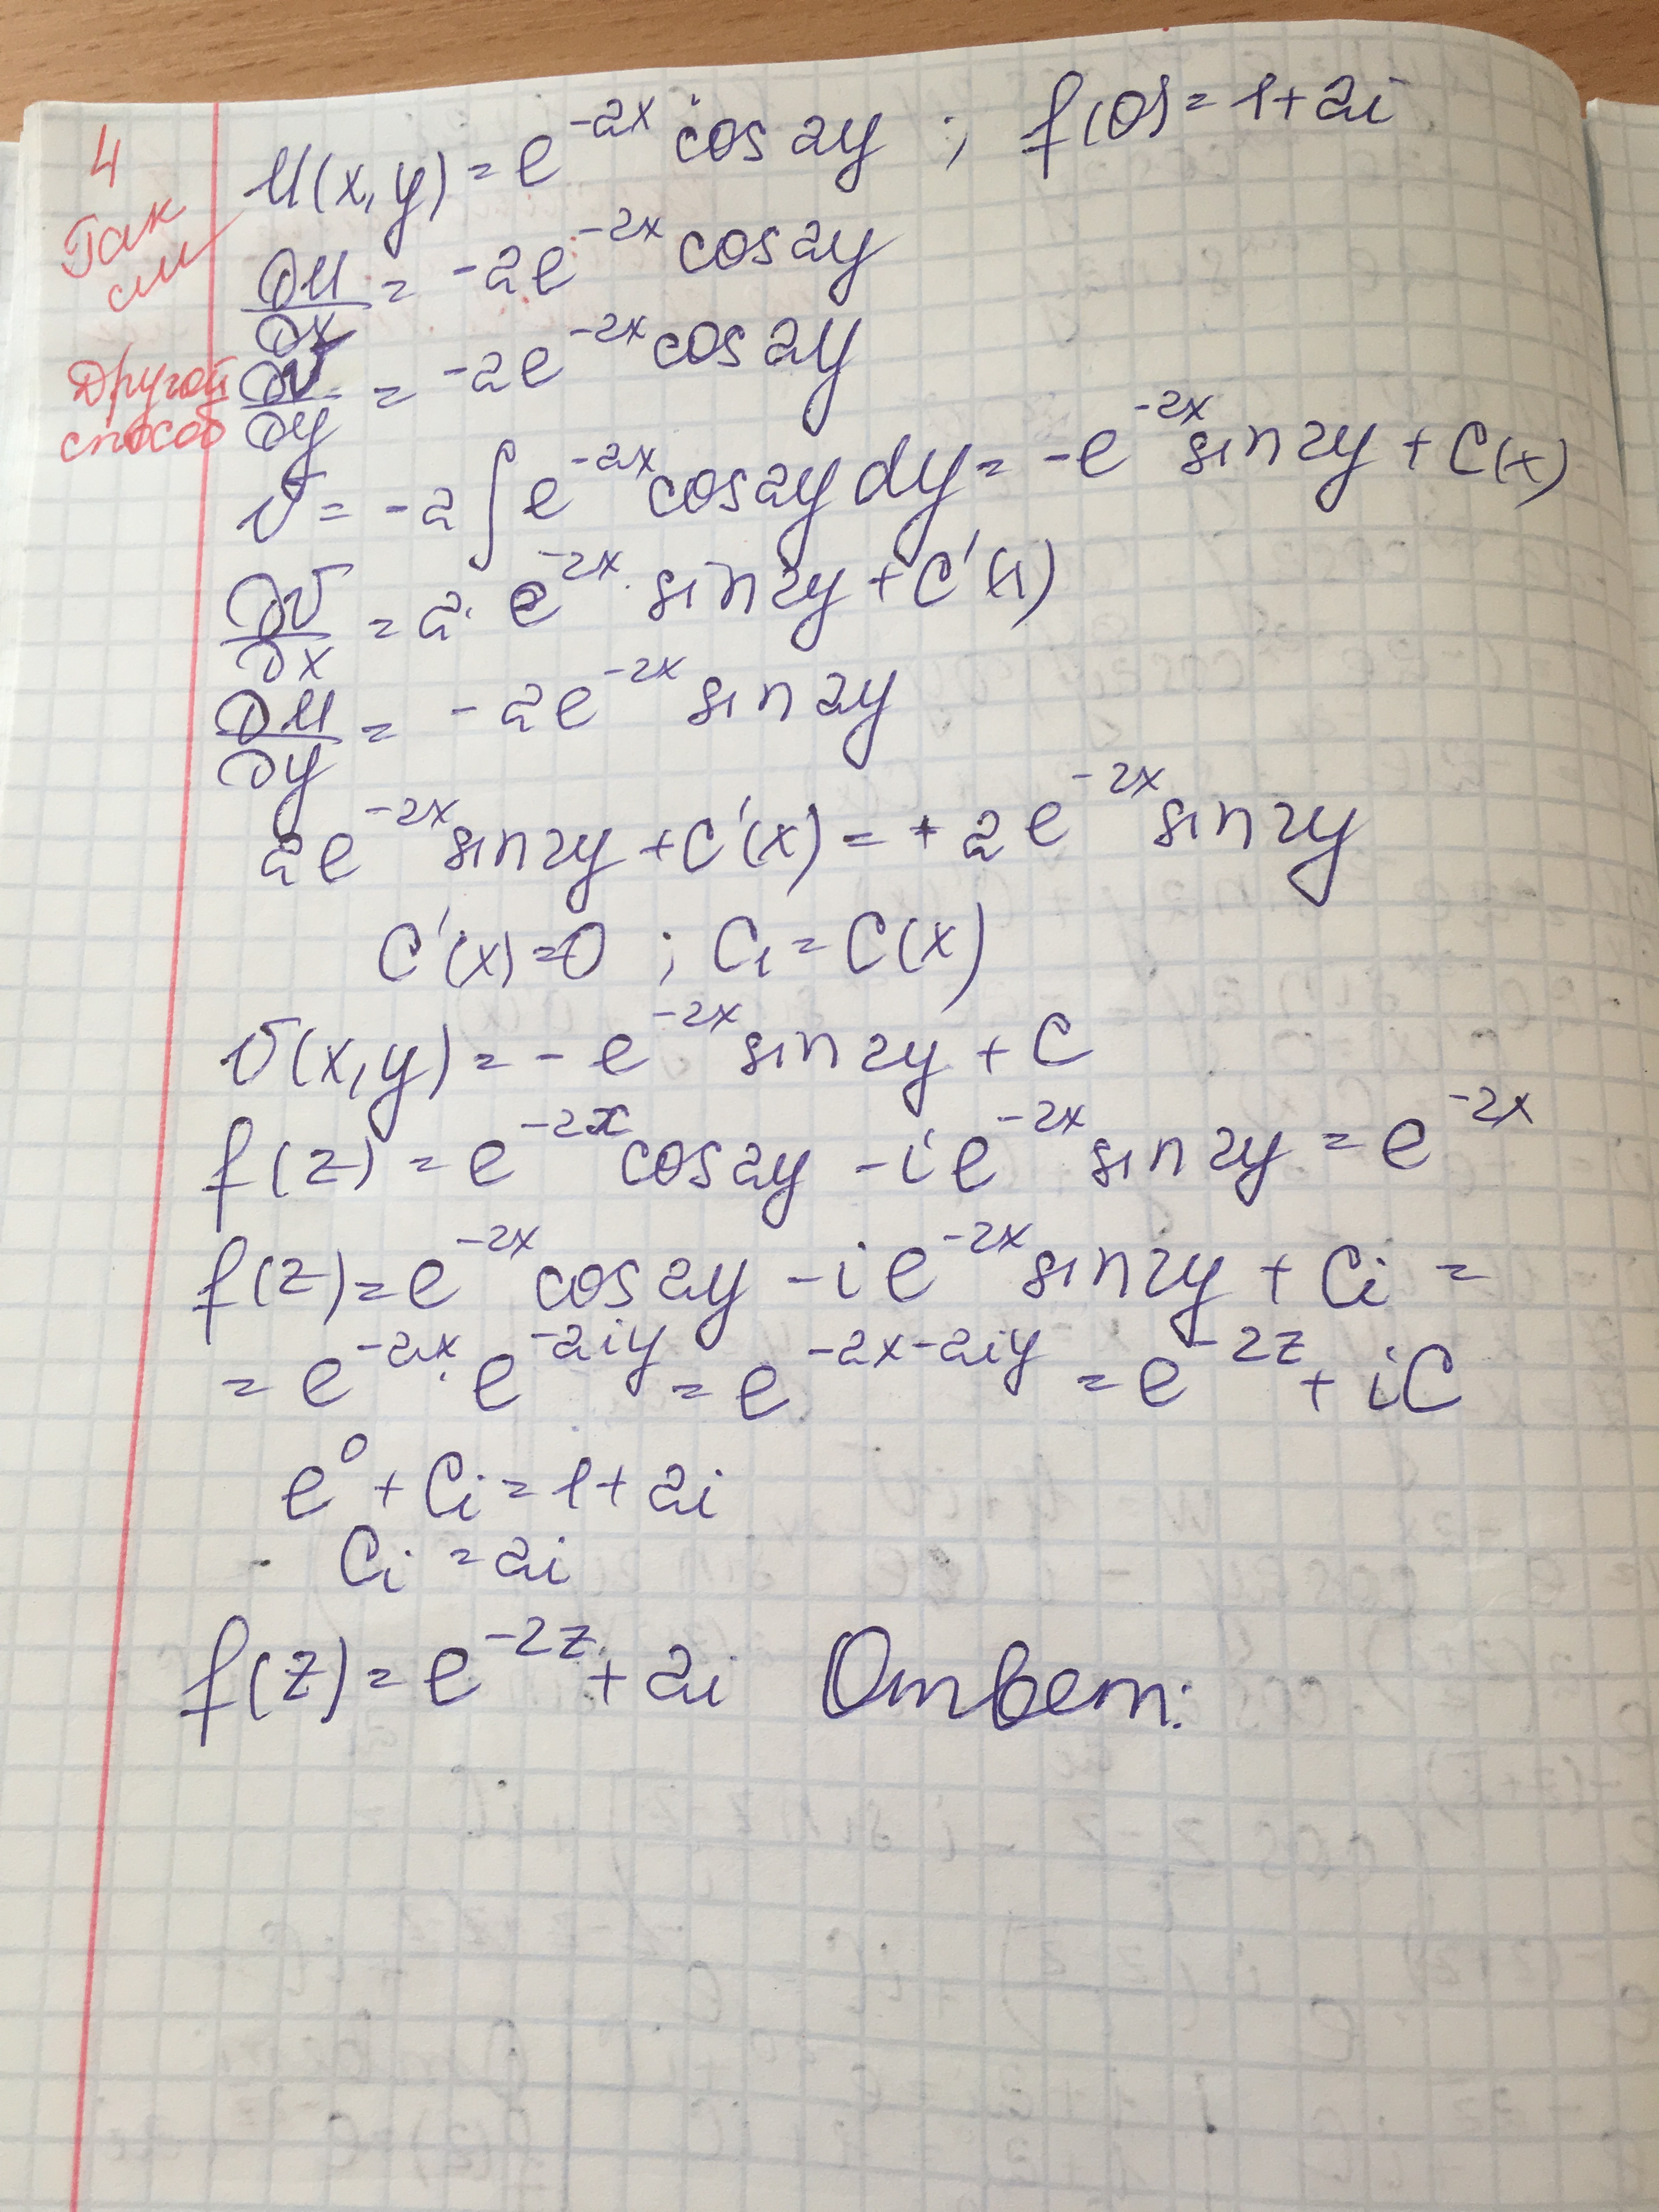 4
Так
см
Другой
способ
U(x,y) = e^{-2x} cos 2y ; f(0) = 1+2i
∂U/∂x = -2e^{-2x} cos 2y
∂V/∂y = -2e^{-2x} cos 2y
V = -2∫e^{-2x} cos 2y dy = -e^{-2x} sin 2y + C(x)
∂V/∂x = 2·e^{-2x}·sin 2y + C'(x)
∂U/∂y = -2e^{-2x} sin 2y
2e^{-2x} sin 2y + C'(x) = +2e^{-2x} sin 2y
C'(x) = 0 ; C₁ = C(x)
V(x,y) = -e^{-2x} sin 2y + C
f(z) = e^{-2x} cos 2y - i e^{-2x} sin 2y = e^{-2x}
f(z) = e^{-2x} cos 2y - i e^{-2x} sin 2y + Ci =
= e^{-2x}·e^{-2iy} = e^{-2x-2iy} = e^{-2z} + iC
e^0 + Ci = 1+2i
Ci = 2i
f(z) = e^{-2z} + 2i Ответ: